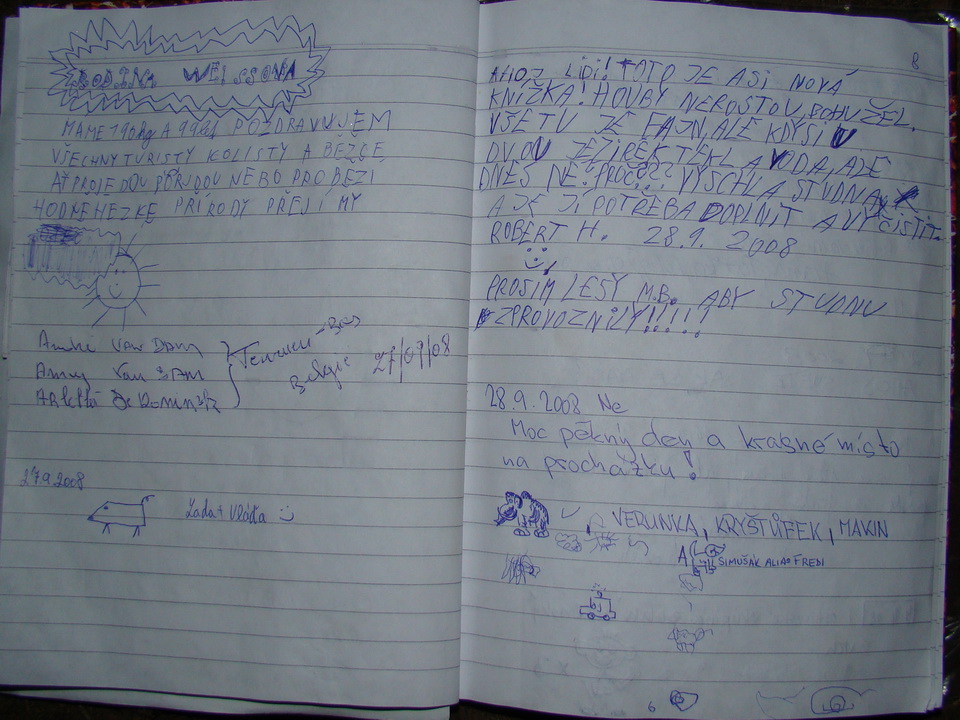 RODINA WEISSOVA
MAME 190kg A 99let POZDRAVUJEM
VŠECHNY TURISTY KOLISTY A BĚŽCE
AŤ PROJEDOU PŘIJDOU NEBO PROBEZI
HODNE HEZKE PŘÍRODY PŘEJI MY
André Van Dam
Anny Van DAM
Belgie 27/09/08
27.9.2008
Lada + Vláďa
8
AHOJ LIDI! TOTO JE ASI NOVÁ
KNIŽKA! HOUBY NEROSTOU, BOHUŽEL.
VŠE TU JE FAJN, ALE KDYSI U
DVOU JEZÍREK TEKLA VODA, ALE
DNES NE. PROČ??? VYSCHLA STUDNA
A JE JÍ POTŘEBA DOPLNIT A VYČISTIT.
ROBERT H. 28.9. 2008
PROSÍM LESY M.B. ABY STUDNU
ZPROVOZNILY!!!!!
28.9.2008 Ne
Moc pěkný den a krásné místo
na procházku!
VERUNKA, KRYŠTŮFEK, MAKIN
A
SIMUŠÁK ALIAS FREDI